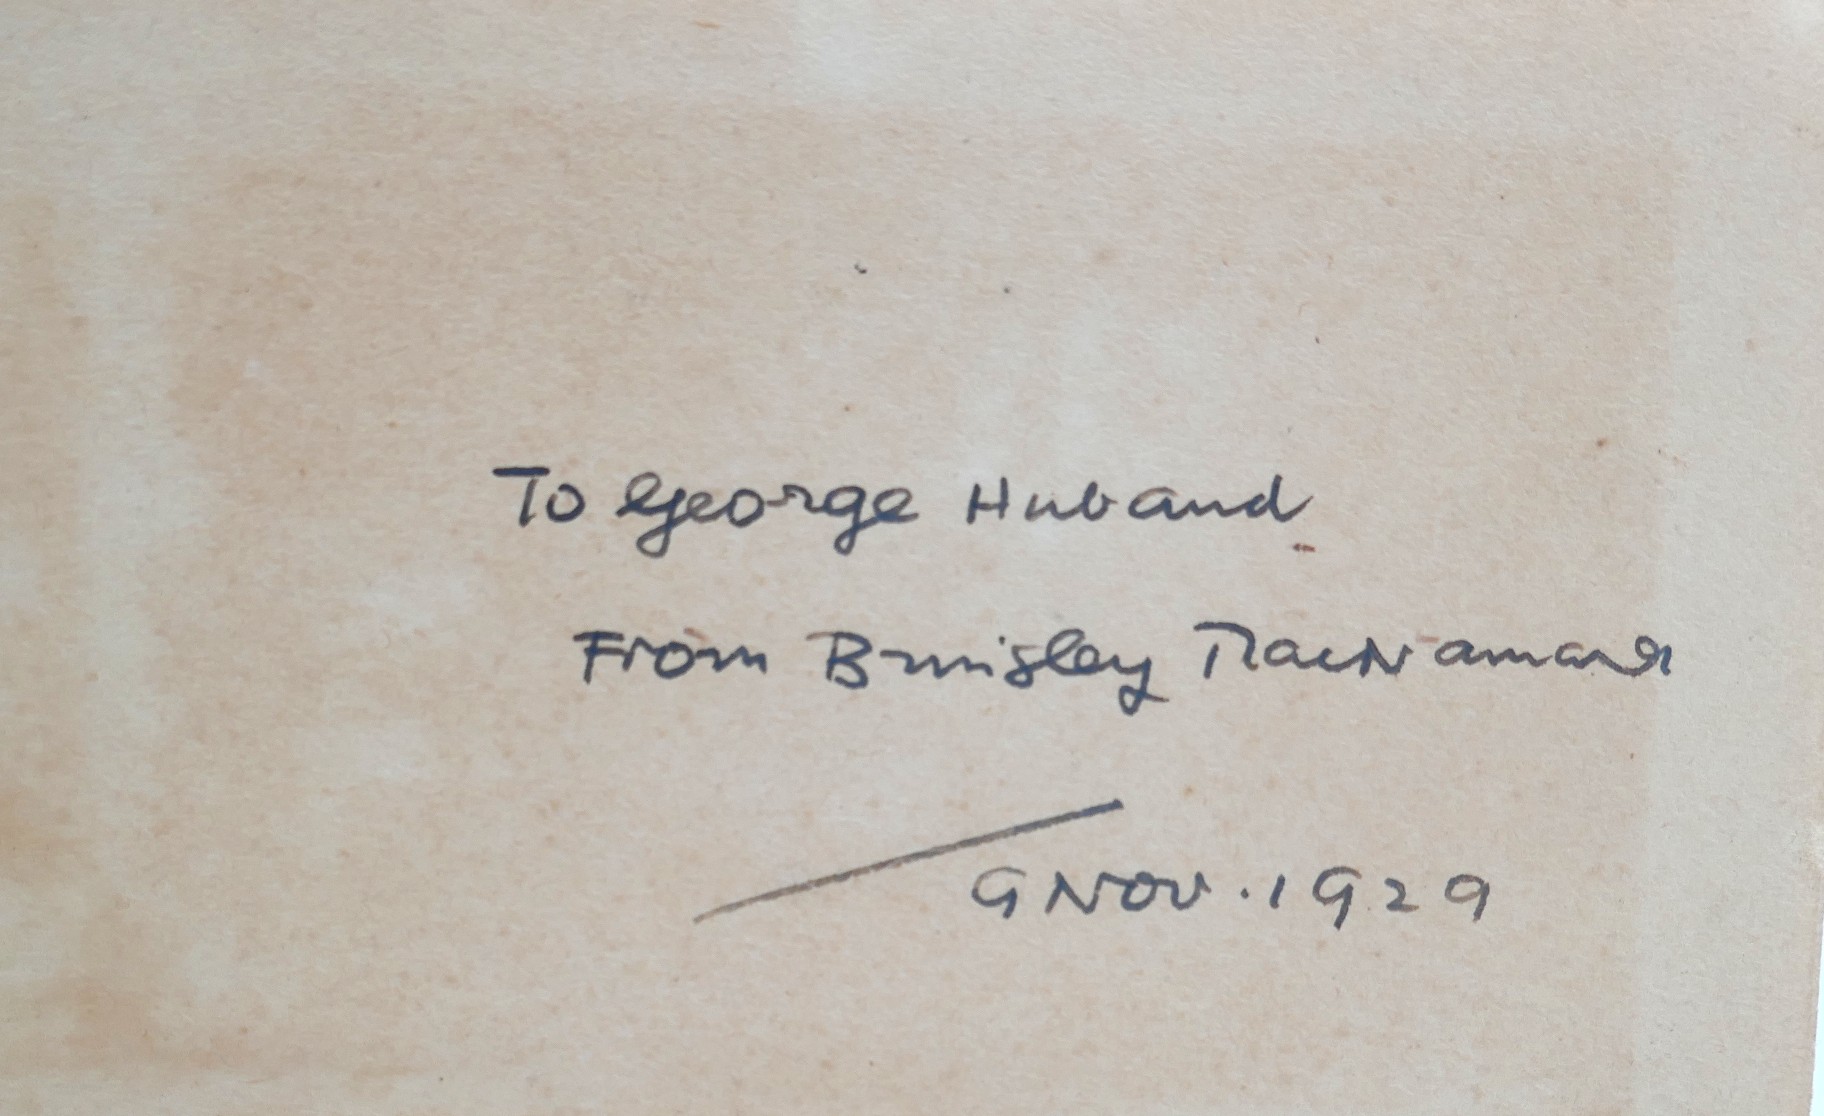 To George Huband
From Brinsley MacNamara
9 Nov. 1929